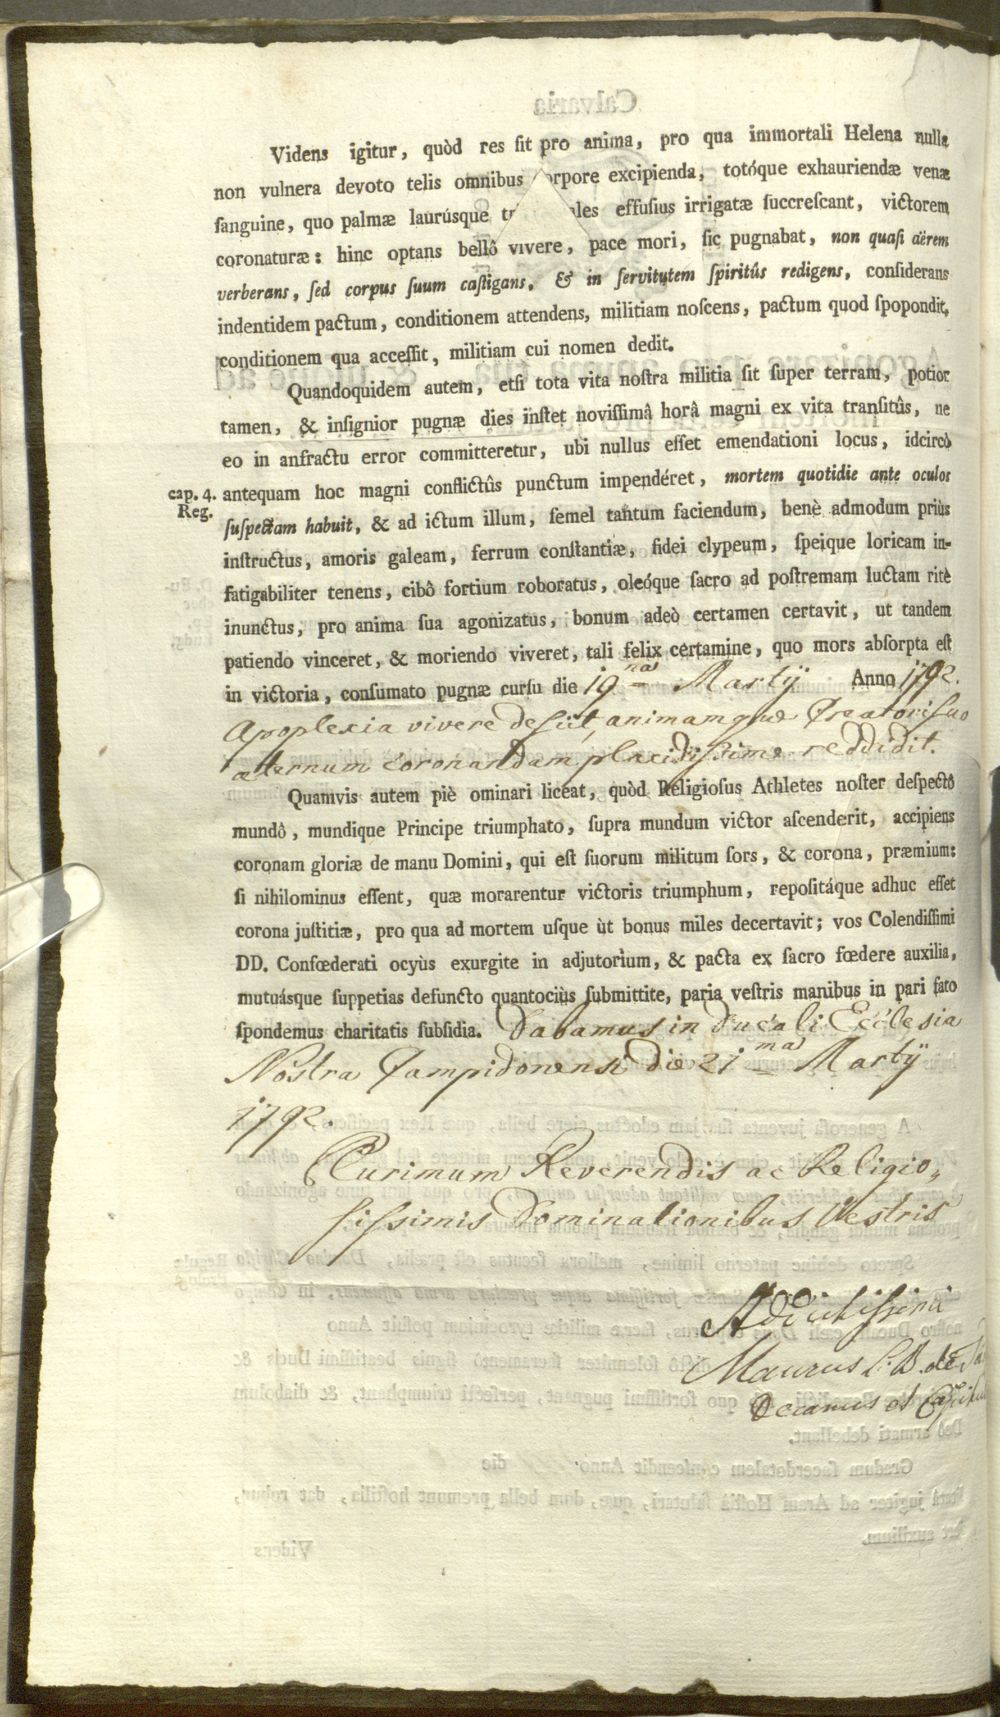 Videns igitur, quòd res ſit pro anima, pro qua immortali Helena nulla
non vulnera devoto telis omnibus orpore excipienda, totóque exhauriendæ venæ
ſanguine, quo palmæ laurúsque les effuſius irrigatæ ſuccreſcant, victorem
coronaturæ: hinc optans bellô vivere, pace mori, ſic pugnabat, non quaſi aërem
verberans, ſed corpus ſuum caſtigans, & in ſervitutem ſpiritûs redigens, conſiderans
indentidem pactum, conditionem attendens, militiam noſcens, pactum quod ſpopondit,
conditionem qua acceſſit, militiam cui nomen dedit.
Quandoquidem autem, etſi tota vita noſtra militia ſit ſuper terram, potior
tamen, & inſignior pugnæ dies inſtet noviſſimâ horâ magni ex vita tranſitûs, ne
eo in anfractu error committeretur, ubi nullus eſſet emendationi locus, idcircò
cap. 4. antequam hoc magni conflictûs punctum impendéret, mortem quotidie ante oculos
Reg. ſuſpectam habuit, & ad ictum illum, ſemel tantum faciendum, benè admodum priùs
inſtructus, amoris galeam, ferrum conſtantiæ, fidei clypeum, ſpeique loricam in-
fatigabiliter tenens, cibô fortium roboratus, oleóque ſacro ad poſtremam luctam ritè
inunctus, pro anima ſua agonizatus, bonum adeò certamen certavit, ut tandem
patiendo vinceret, & moriendo viveret, tali felix certamine, quo mors abſorpta eſt
in victoria, conſumato pugnæ curſu die 19na Martÿ Anno 1792.
Apoplexia vivere desiit, animamque Creatori suo
æternum coronandam placidissime reddidit.
Quamvis autem piè ominari liceat, quòd Religioſus Athletes noſter deſpectô
mundô, mundique Principe triumphato, ſupra mundum victor aſcenderit, accipiens
coronam gloriæ de manu Domini, qui eſt ſuorum militum ſors, & corona, præmium:
ſi nihilominus eſſent, quæ morarentur victoris triumphum, repoſitáque adhuc eſſet
corona juſtitiæ, pro qua ad mortem uſque ùt bonus miles decertavit; vos Colendiſſimi
DD. Confœderati ocyùs exurgite in adjutorium, & pacta ex ſacro fœdere auxilia,
mutuásque ſuppetias defuncto quantociùs ſubmittite, paria veſtris manibus in pari fato
ſpondemus charitatis ſubſidia. Dabamus in Ducali Ecclesia
Nostra Campidonensi die 21ma Martÿ
1792.
Plurimum Reverendis ac Religio-
sissimis Dominationibus Vestris
Addictissimi
Maurus L: B. de
Decanus et